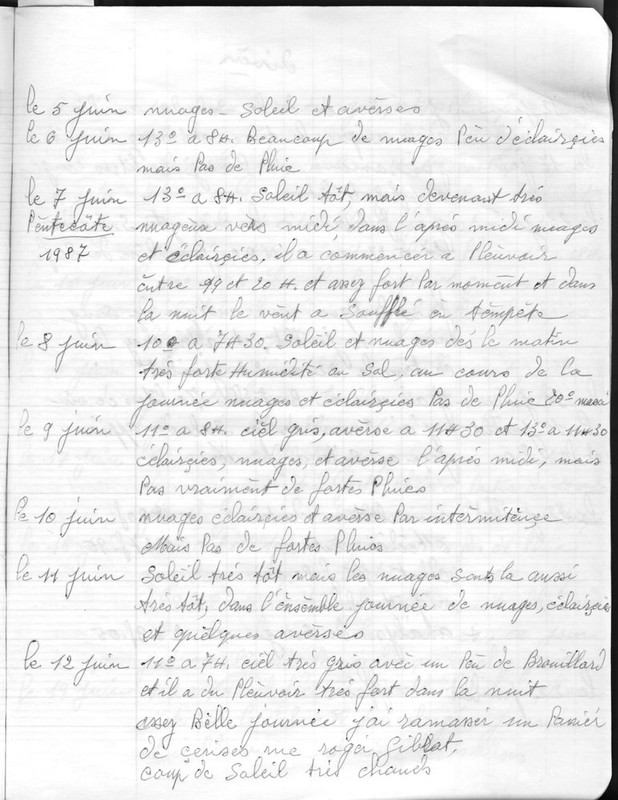 le 5 juin nuages - Soleil et avèrses
le 6 juin 13º a 8H. Beaucoup de nuages Pèu d'éclairçies
mais Pas de Pluie
le 7 juin 13º a 8H. Soleil tôt, mais devenant très
Pèntecôte nuageux vèrs midi, dans l'après midi nuages
1987 et éclairçies, il a commencer a Plèuvoir
èntre 19 et 20 H. et assez fort Par momènt et dans
la nuit le vènt a Soufflé en tèmpête
le 8 juin 10º a 7H30. Solèil et nuages dès le matin
très forte Humidité au Sol, au cours de la
journée nuages et éclairçies Pas de Pluie 20º maxi
le 9 juin 11º a 8H. cièl gris, avèrse a 11H30 et 13º a 11H30
éclairçies, nuages, et avèrse l'après midi, mais
Pas vraimènt de fortes Pluies
le 10 juin nuages éclairçies et avèrse Par intermitènçe
Mais Pas de fortes Pluies
le 11 juin Soleil très tôt mais les nuages sont la aussi
très tôt, dans l'ènsèmble journée de nuages, éclairçies
et quelques avèrses
le 12 juin 11º a 7H. cièl très gris avèc un Pèu de Brouillard
et il a du Plèuvoir très fort dans la nuit
assez Bèlle journée j'ai ramasser un Panièr
de cerises rue roger Giblat,
coup de Soleil très chauds